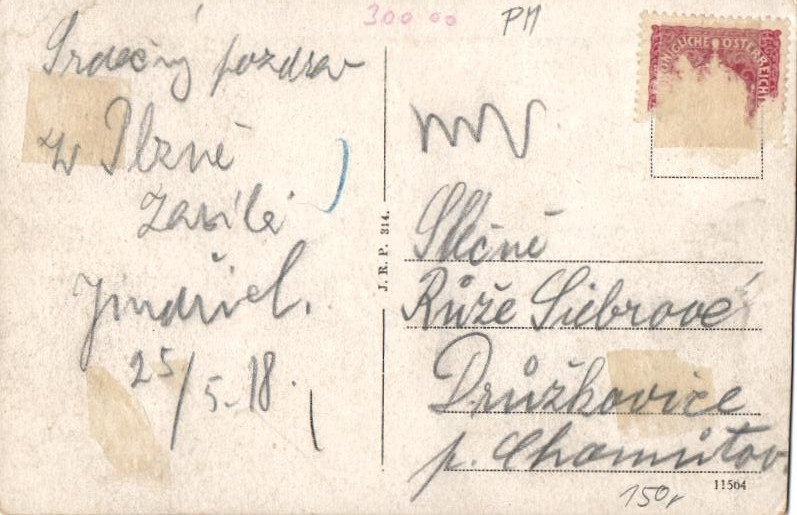 300 00
PM
Srdečný pozdrav
z Plzně
zasílá
Jindřich.
25/5-18.
J. R. P. 314.
KÖNIGLICHE ÖSTERREICH
Slečně
Růže Siebrové
Družkovice
p. Chomútov.
11564
150,-